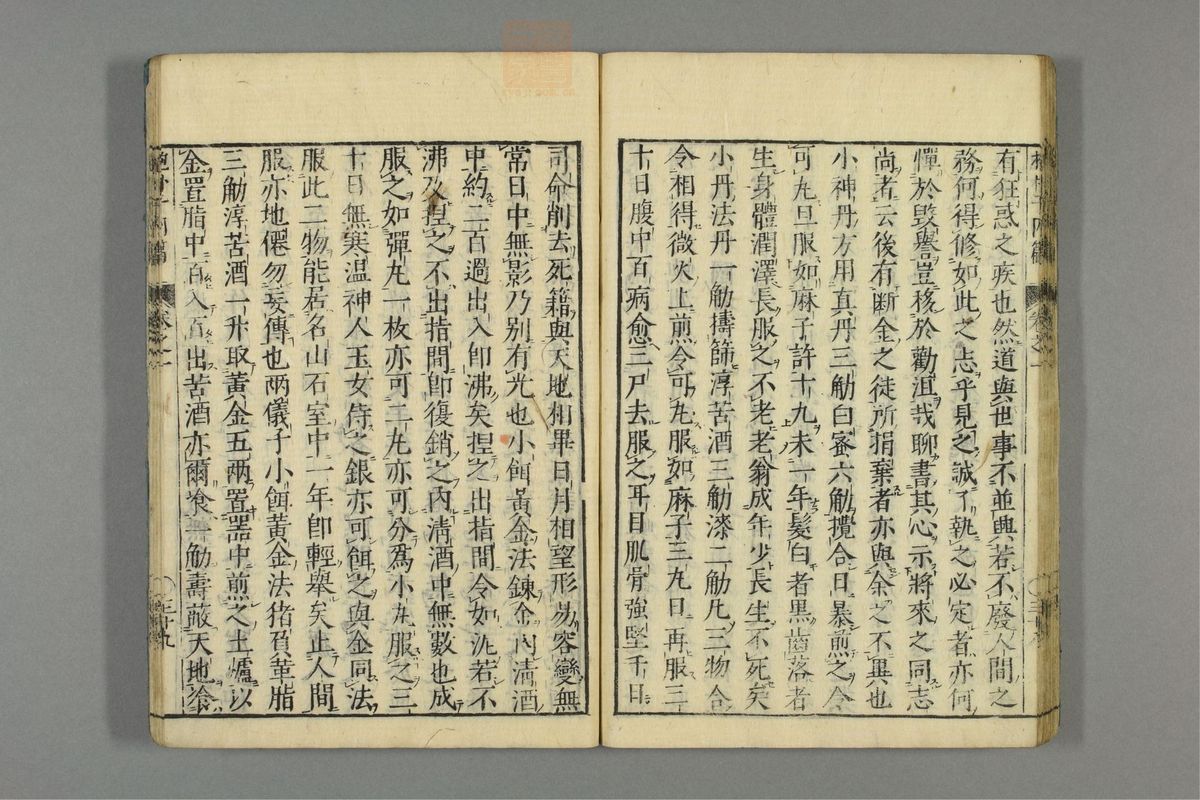 有狂惑之疾也然道與世事不並興若不廢人間之
務何得修如此之志乎見之誠了執之必定者亦何
憚於毀譽豈移於勸沮哉聊書其心示將來之同志
尚者云後有斷金之徒所捐棄者亦與余之不異也
小神丹方用真丹三觔白蜜六觔攪合日暴煎之令
可丸旦服如麻子許十丸未一年髮白者黑齒落者
生身體潤澤長服之不老老翁成年少長生不死矣
小丹法丹一觔擣篩淳苦酒三觔漆二觔凡三物合
令相得微火上煎令可丸服如麻子三丸日再服三
十日腹中百病愈三尸去服之耳目肌骨強堅千日
司命削去死籍與天地相畢日月相望形易容變無
常日中無影乃別有光也小餌黃金法鍊金內清酒
中約二百過出入卽沸矣捏之出指間令如泥若不
沸及捏之不出指間卽復銷之內清酒中無數也成
服之如彈丸一枚亦可二丸亦可分爲小丸服之三
十日無寒温神人玉女侍之銀亦可餌之與金同法
服此二物能居名山石室中一年卽輕舉矣止人間
服亦地僊勿妄傳也兩儀子小餌黃金法猪負革脂
三觔淳苦酒一升取黃金五兩置器中煎之土爐以
金置脂中百入百出苦酒亦爾飡 觔壽蔽天地
抱朴子內篇 卷之一 三十九